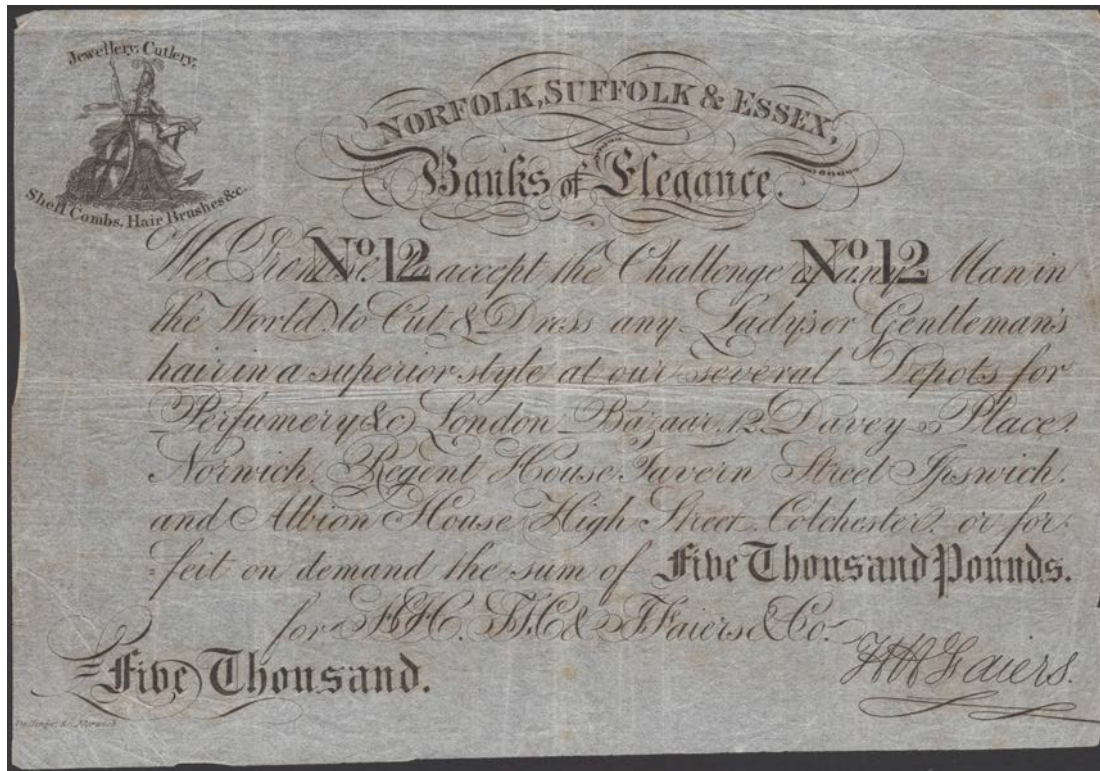 Jewellery, Cutlery,
Shell Combs, Hair Brushes &c.
NORFOLK, SUFFOLK & ESSEX,
Banks of Elegance.
We Promise to accept the Challenge of any Man in
No. 12 No. 12
the World, to Cut & Dress any Lady's or Gentleman's
hair in a superior style at our several Depots for
Perfumery &c London Bazaar, 12, Davey Place,
Norwich, Regent House Tavern Street Ipswich,
and Albion House High Street, Colchester, or for-
=feit on demand the sum of Five Thousand Pounds.
for & Faiers & Co.
Five Thousand.
Faiers.
Norwich